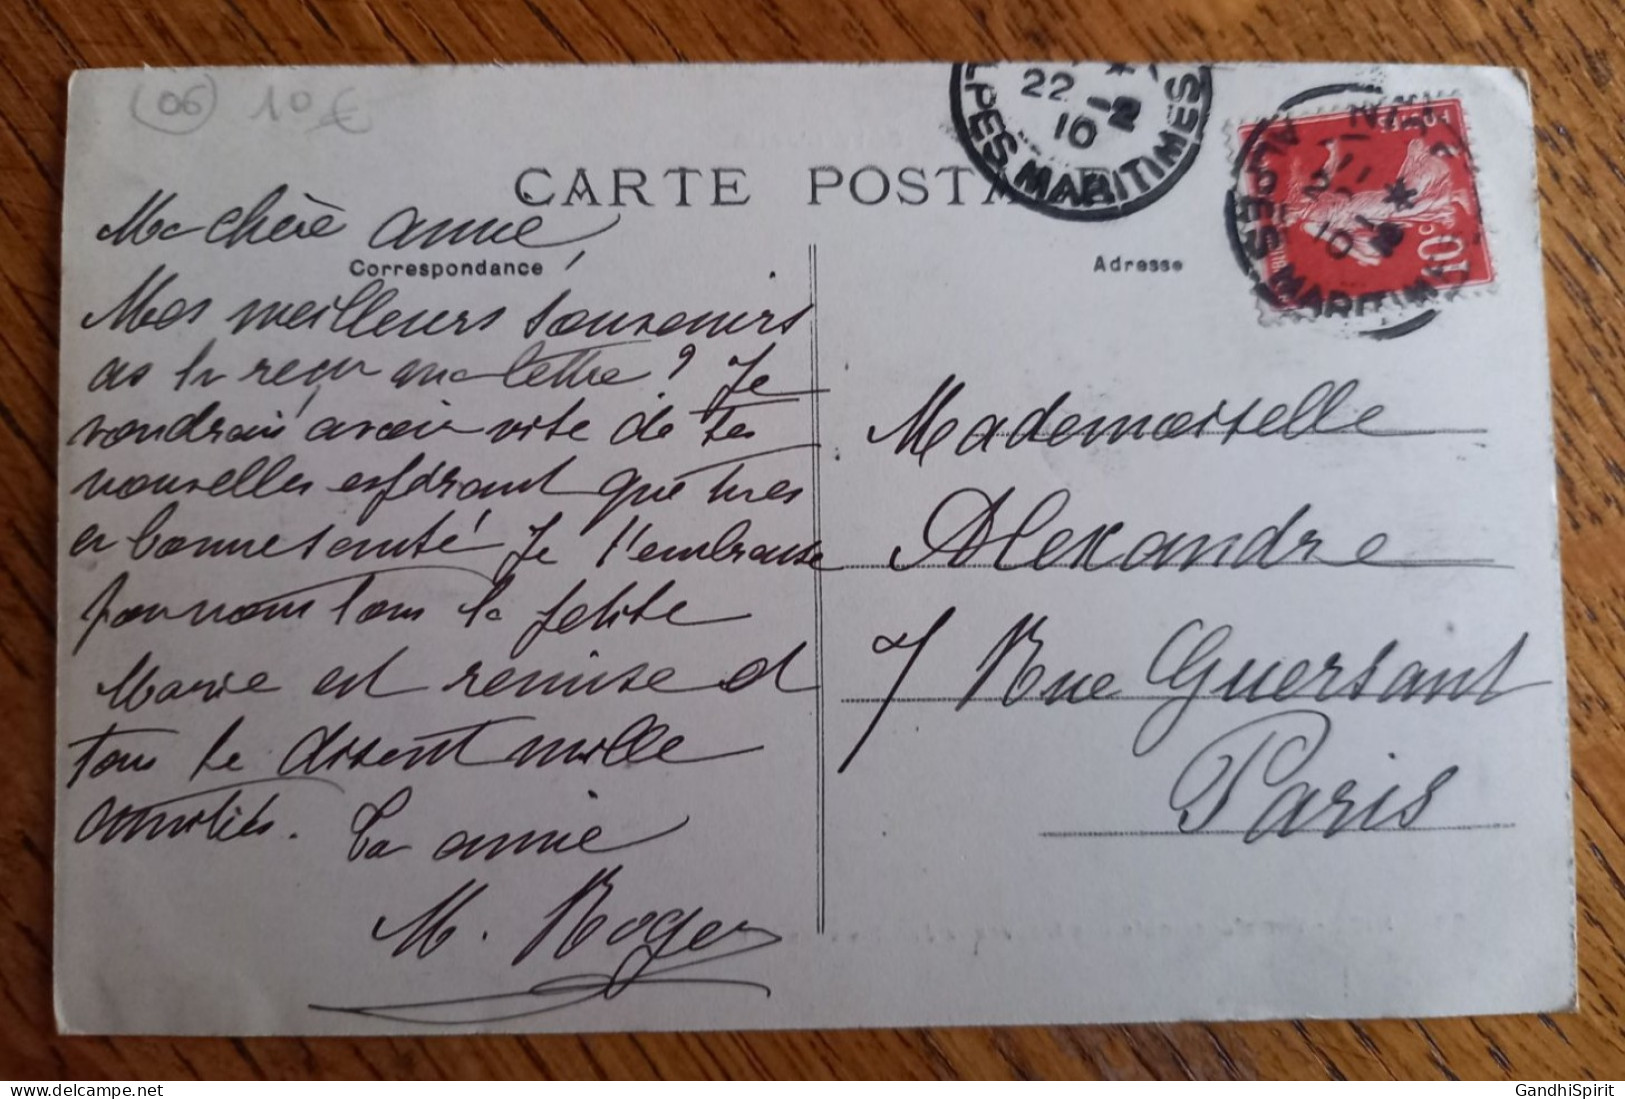 (06) 10 €
CARTE POSTALE
22 1
10
ALPES MARITIMES
10 1
ALPES MARITIMES
10c
Correspondance
Adresse
Ma chère amie
Mes meilleurs souvenirs
as tu reçu ma lettre? Je
voudrais avoir vite de tes
nouvelles espérant que tu es
en bonne santé Je t'embrasse
pour nous tous la petite
Marie est remise et
tous te disent mille
amitiés. Ta amie
M. Roger
Mademoiselle
Alexandre
7 Rue Guersant
Paris
GandhiSpirit